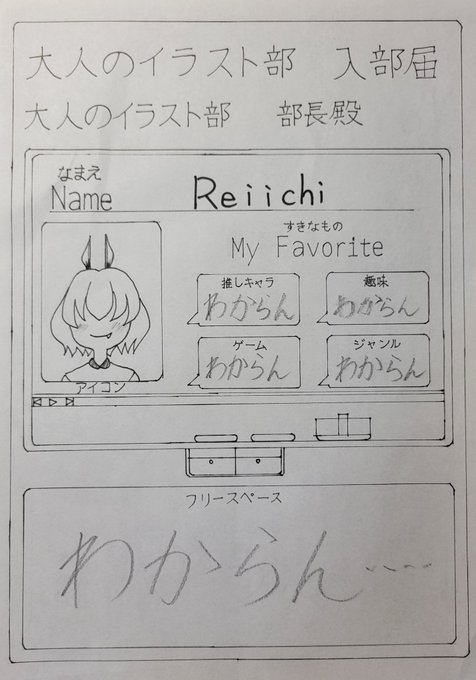 大人のイラスト部　入部届
大人のイラスト部　部長殿
なまえ
Name Reiichi
すきなもの
My Favorite
推しキャラ
わからん
趣味
わからん
ゲーム
わからん
ジャンル
わからん
アイコン
フリースペース
わからん....